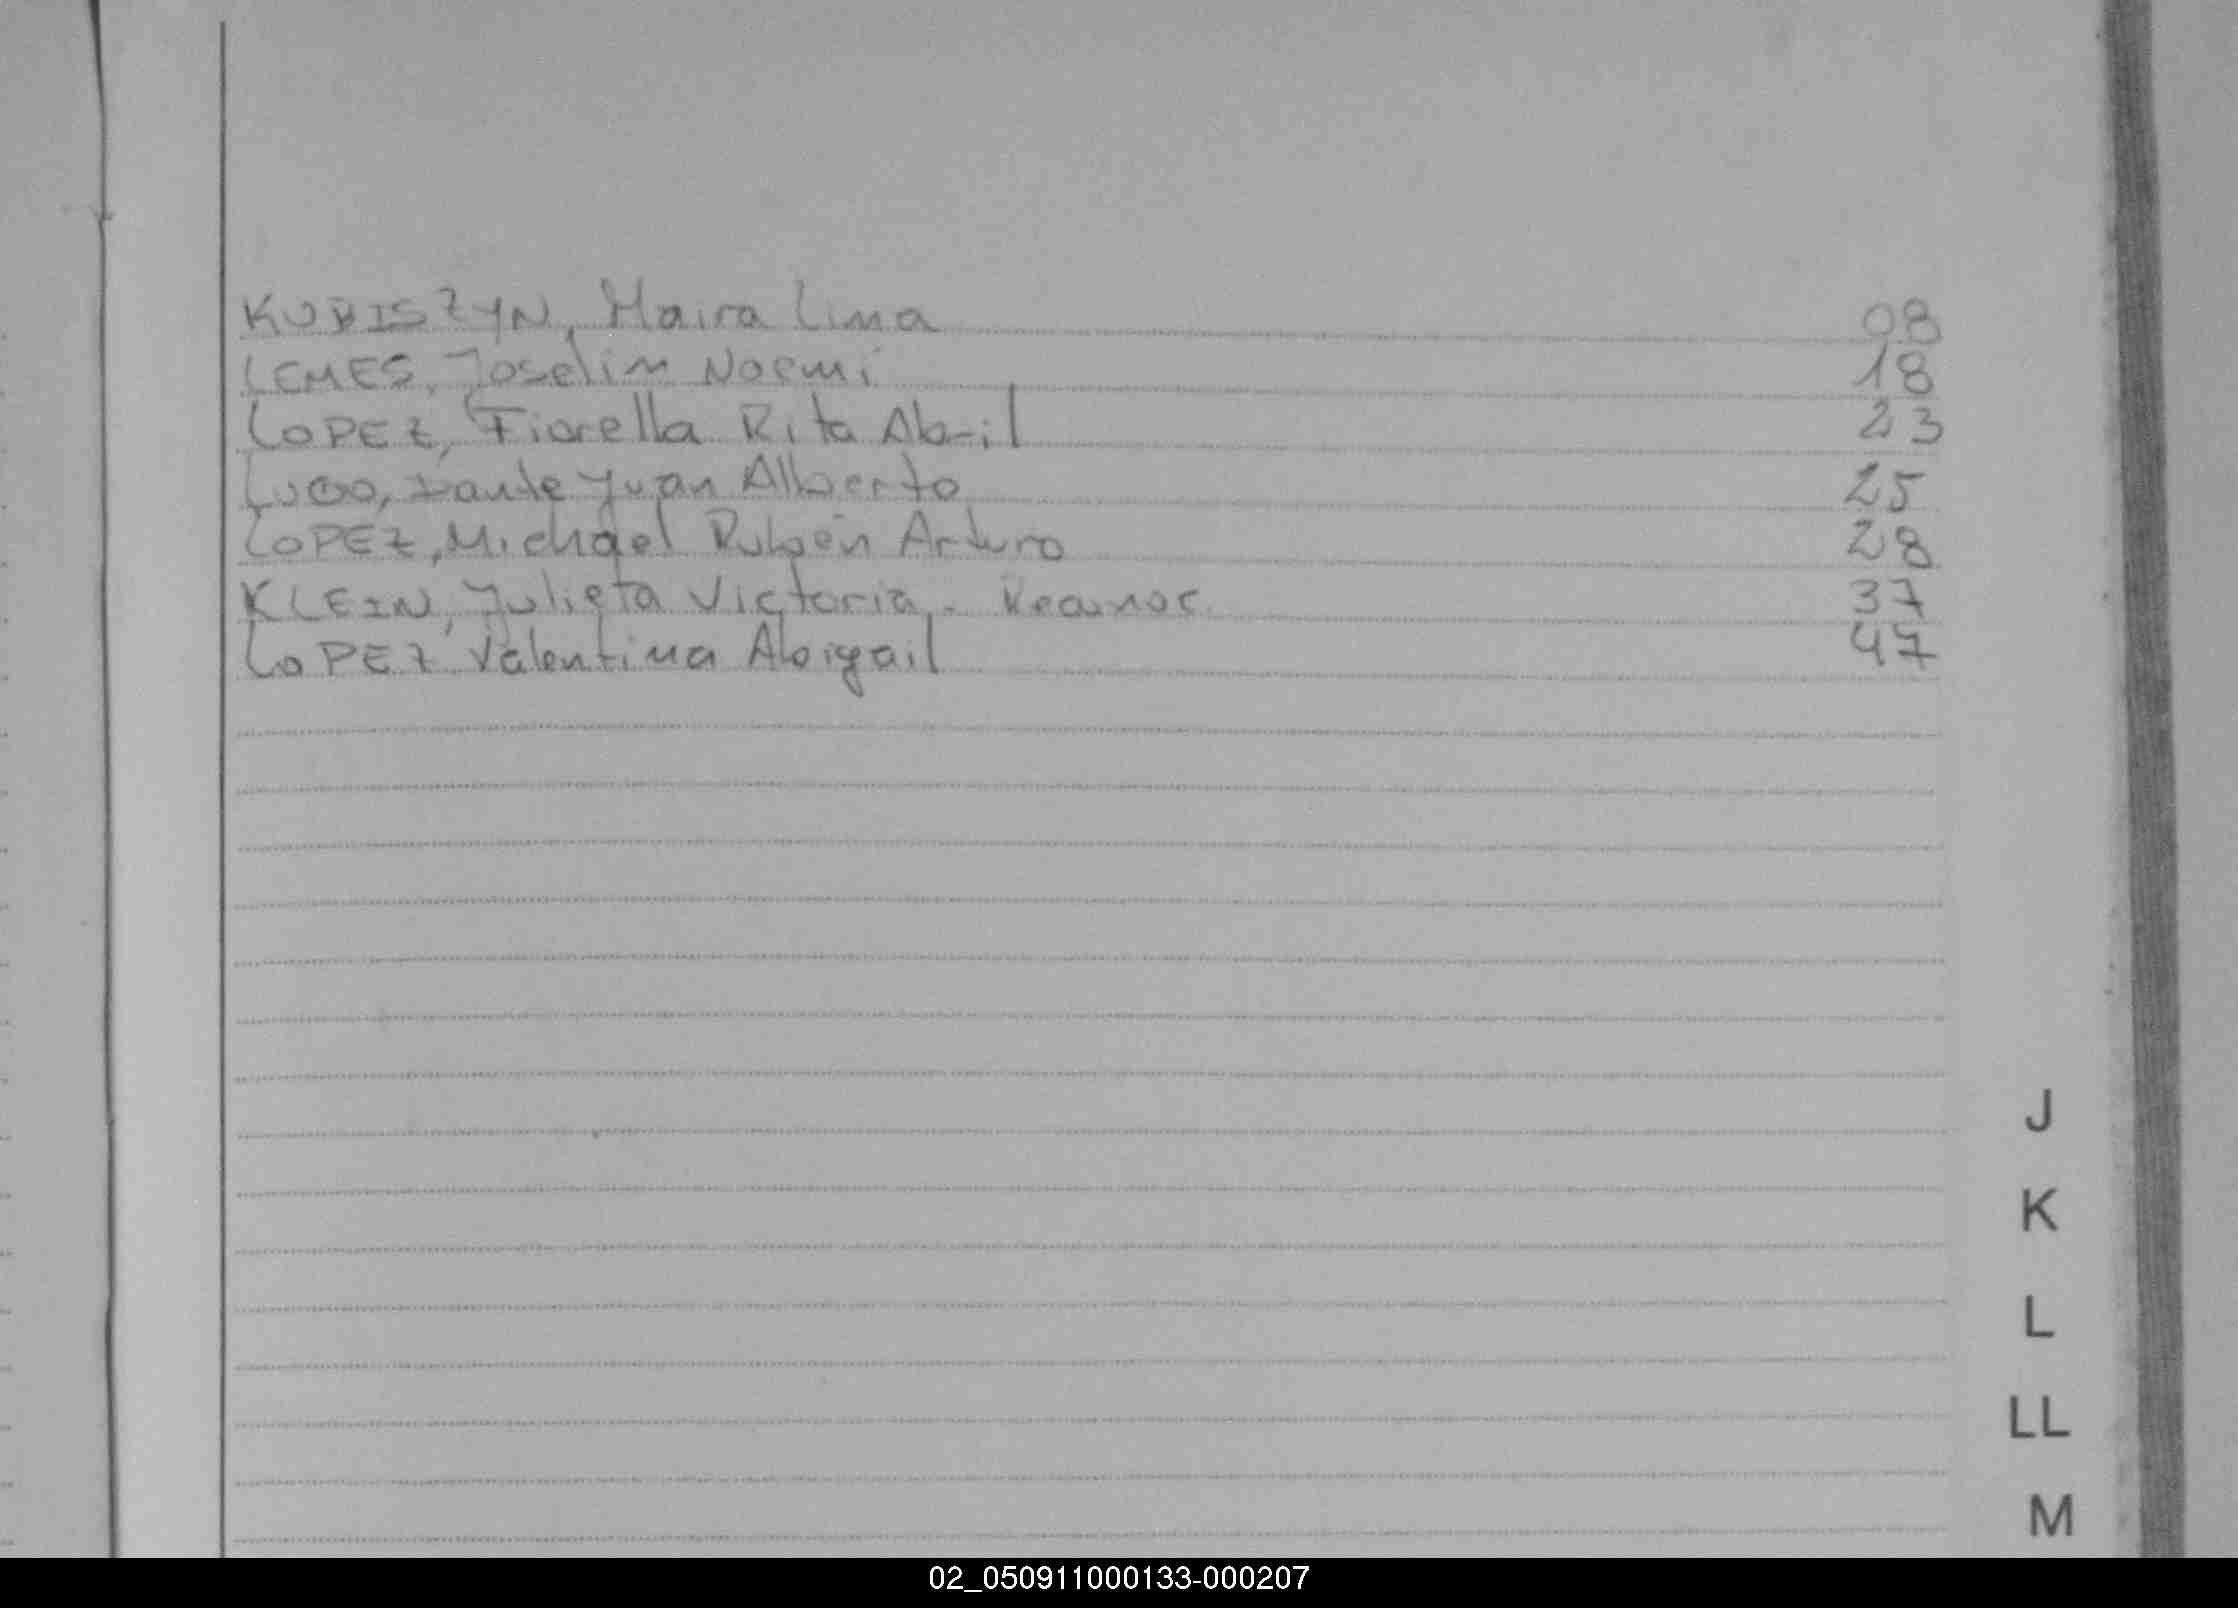 KUBISZYN, Maira Lina 08
LEMES, Joselin Noemi 18
LOPEZ, Fiorella Rita Abril 23
LUGO, Dante Juan Alberto 25
LOPEZ, Michael Rubén Arturo 28
KLEIN, Julieta Victoria - 37
LOPEZ Valentina Abigail 47
J
K
L
LL
M
02_050911000133-000207